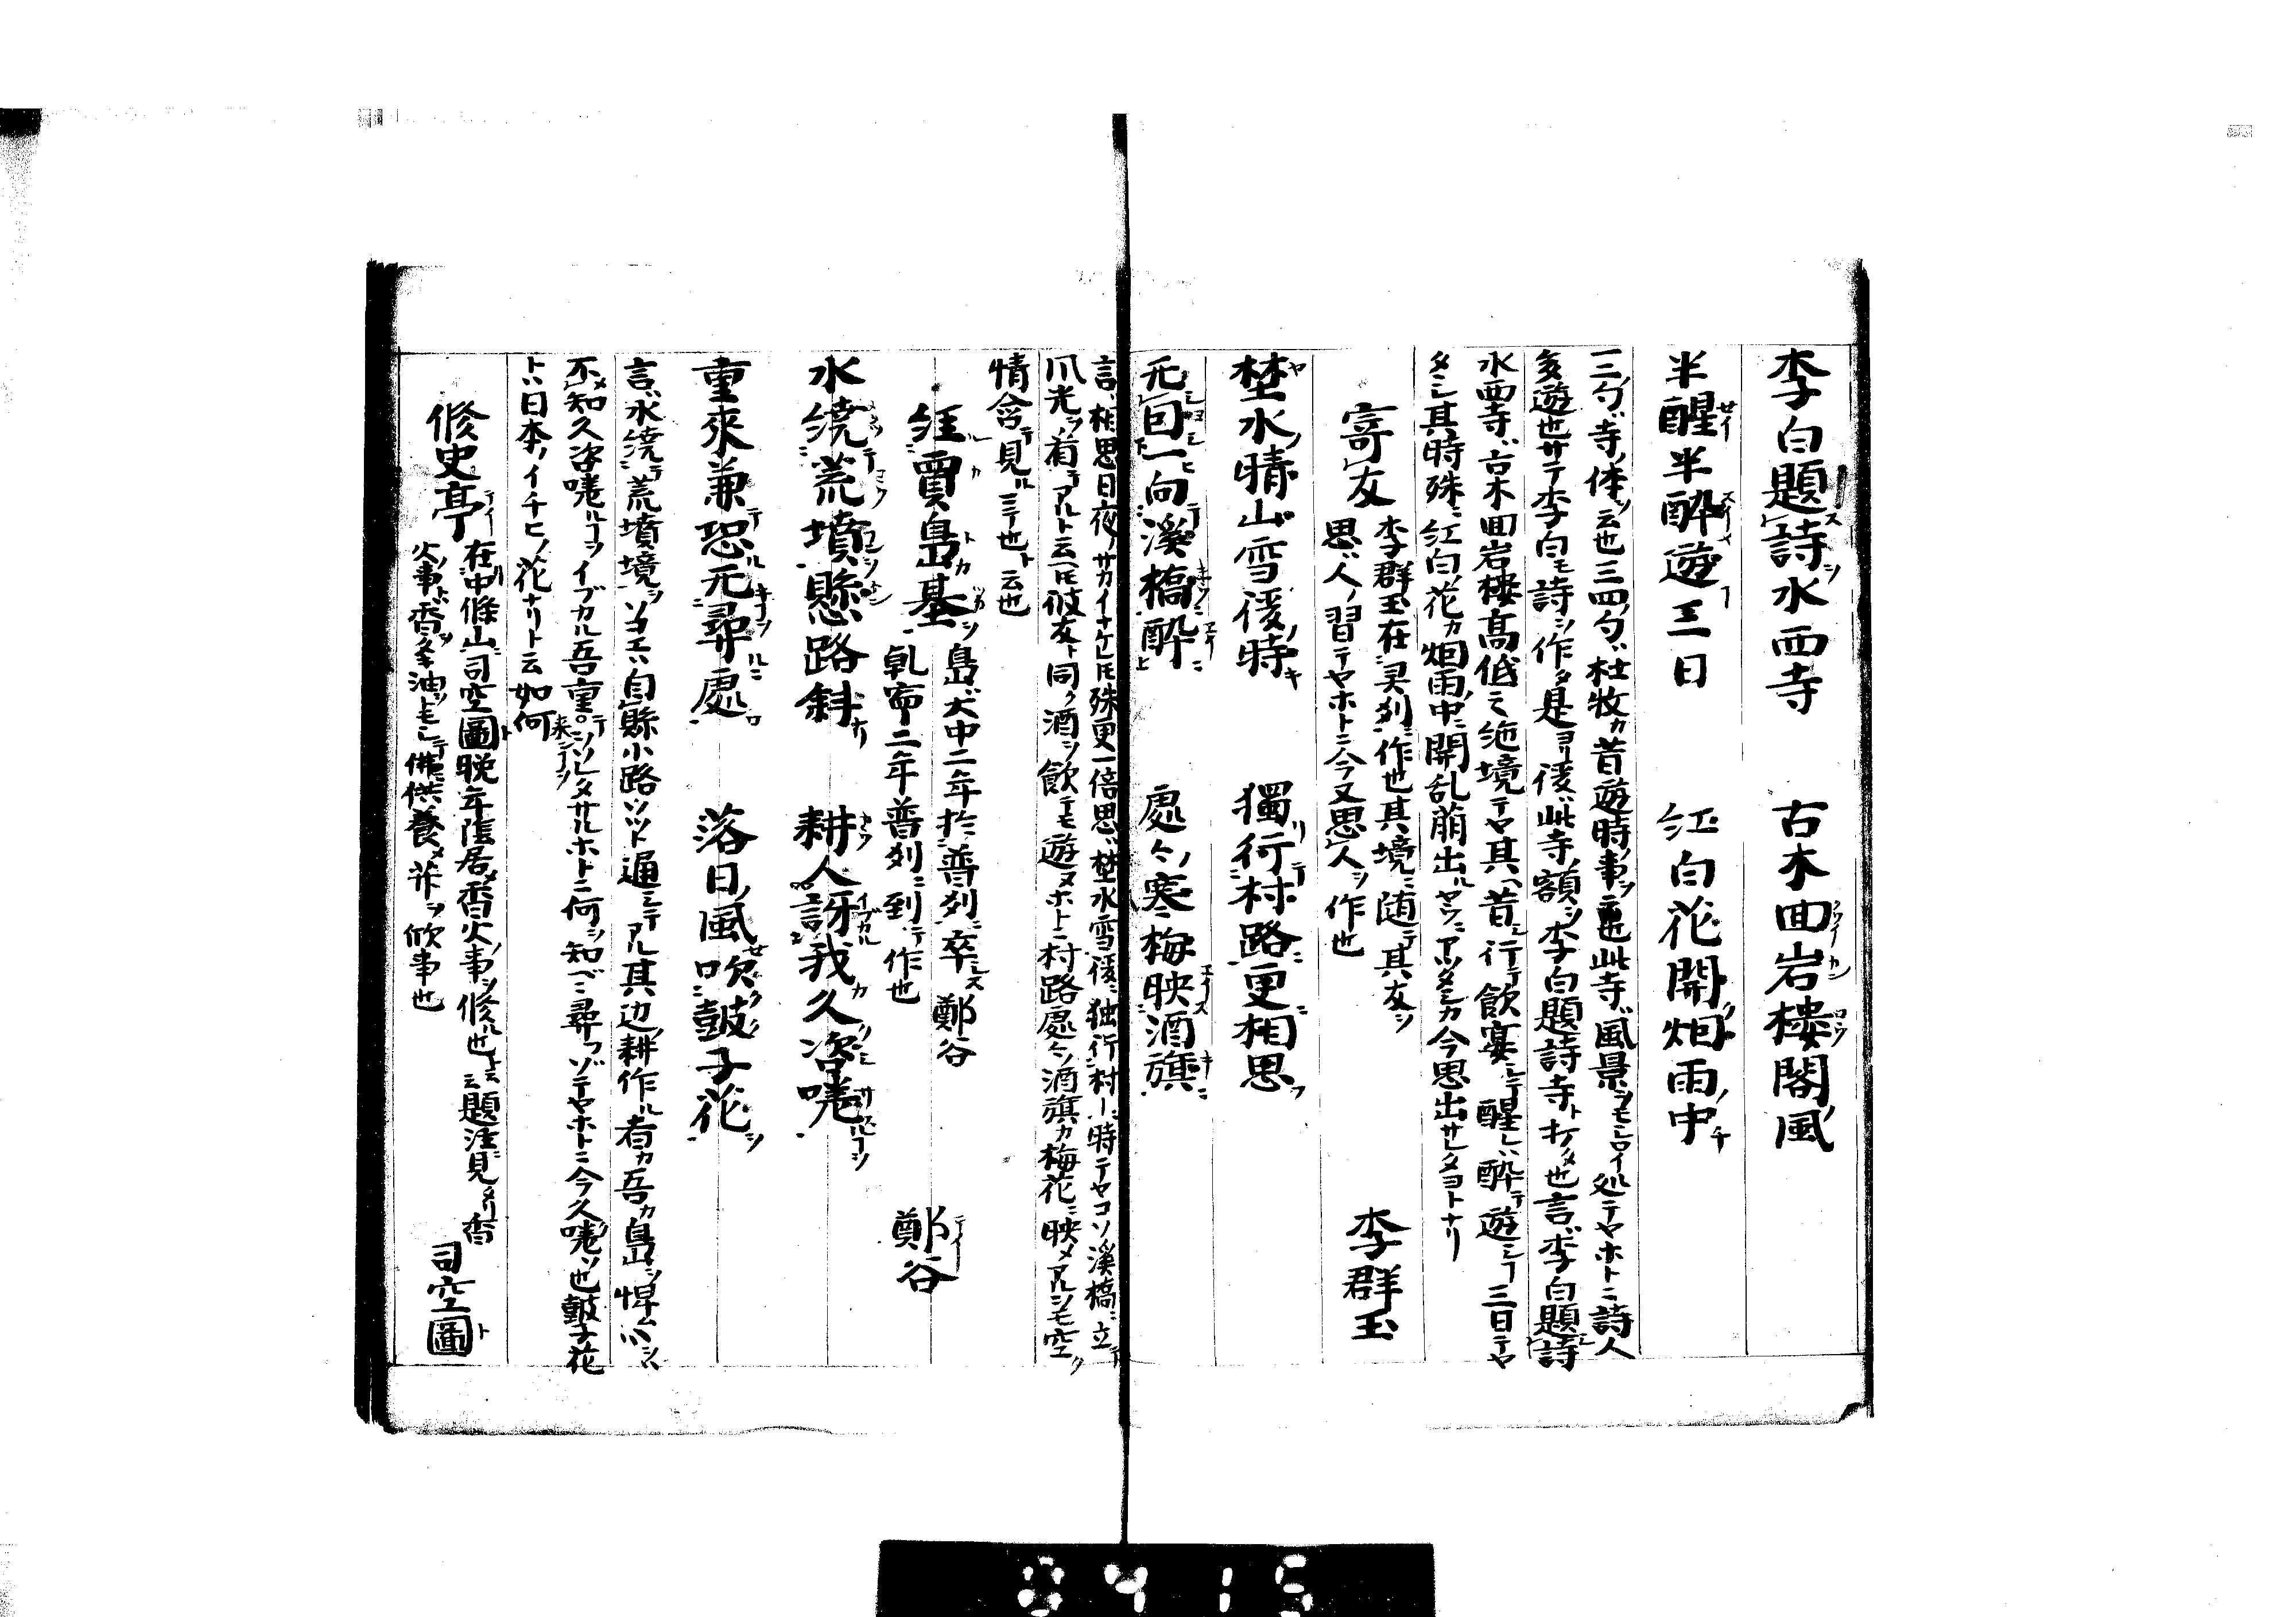 李白題詩水西寺　古木回岩樓閣風
半醒半酔遊三日　紅白花開烟雨中
三ノ句ハ寺ノ体ヲ云也三四ノ句ハ杜牧カ昔遊時ノ事ヲ云也此寺ハ風景ヲモシロイ処テヤホトニ詩人
多遊也サテ李白モ詩ヲ作タ是ヨリ後ハ此寺ノ額ヲ李白題詩寺ト打タ也言ハ李白題詩
水西寺ハ古木回岩樓高低〆絶境テヤ其ヘ昔シ行テ飲宴シテ醒レハ酔テ遊シヿ三日テヤ
タシ其時殊ニ紅白花カ烟雨ノ中ニ開乱崩出ルヤウニアツタシカ今思出サレタヨトナリ
寄友　李群玉在灵州ニ作也其境ニ随テ其友ヲ
思ハ人ノ習テヤホトニ今又思人ヲ作也　李群玉
埜水晴山雪後時　獨行村路更相思
无回一向溪橋酔　處々寒梅映酒旗
言ハ相思日夜ノサカイナケレ𪜈殊更一倍思ハ埜水雪後ニ独行村ニ時テヤコソ溪橋ニ立
爪光ヲ有テアルト云ヘ𪜈彼友ト同ク酒ヲ飲テモ遊ヌホトニ村路處々ノ酒旗カ梅花ニ映メアルシモ空ク
情含テ見ル三テ也ト云也
經賈島墓　島大中二年於普州ニ卒ス　鄭谷
乾寧二年普州ニ到テ作也　鄭谷
水繞荒墳縣路斜　耕人訝我久咨嗟
重來兼恐无尋處　落日風吹鼓子花
言ハ水繞テ荒墳境ヲソコエハ自縣小路ツツト通シテアル其辺ノ耕作ル者カ吾カ島ヲ悼ム心ヲ
不知久咨嗟ルヿヲイブカル吾重テ来シヿヲソレタサルホトニ何ヲ知ヘニ尋フゾテヤホトニ今久嗟ソ也鼓子花
トハ日本ノイチヒノ花ナリト云如何
修史亭　在中條山司空圖晩年隱居〆香火ノ事ヲ修ル也ト云ス題注見タリ香
火ノ事ト香ヲ多油ヲトモシテ佛ニ供養〆荐ヲ欣事也　司空圖
0415